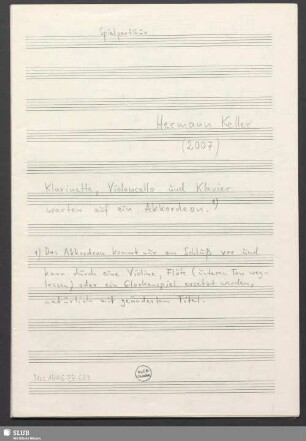 Spielpartitur
Hermann Keller
(2007)
Klarinette, Violoncello und Klavier
warten auf ein Akkordeon. 1)
1) Das Akkordeon kommt nur am Schluß vor und
kann durch eine Violine, Flöte (unteren Ton weg-
lassen) oder ein Glockenspiel ersetzt werden,
natürlich mit geändertem Titel.
SLUB
Wir führen Wissen.